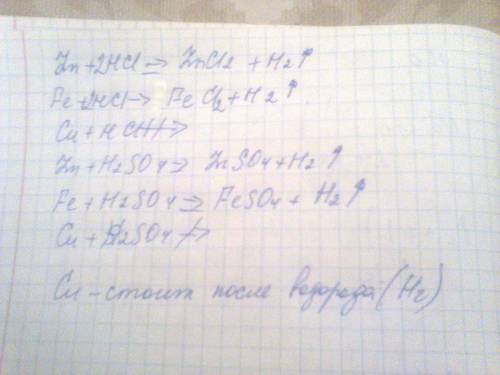 Zn+2HCl → ZnCl2 + H2↑
Fe+2HCl → FeCl2 + H2↑
Cu + HCl ↛
Zn + H2SO4 → ZnSO4 + H2↑
Fe + H2SO4 → FeSO4 + H2↑
Cu + H2SO4 ↛
Cu - стоит после водорода (H2)